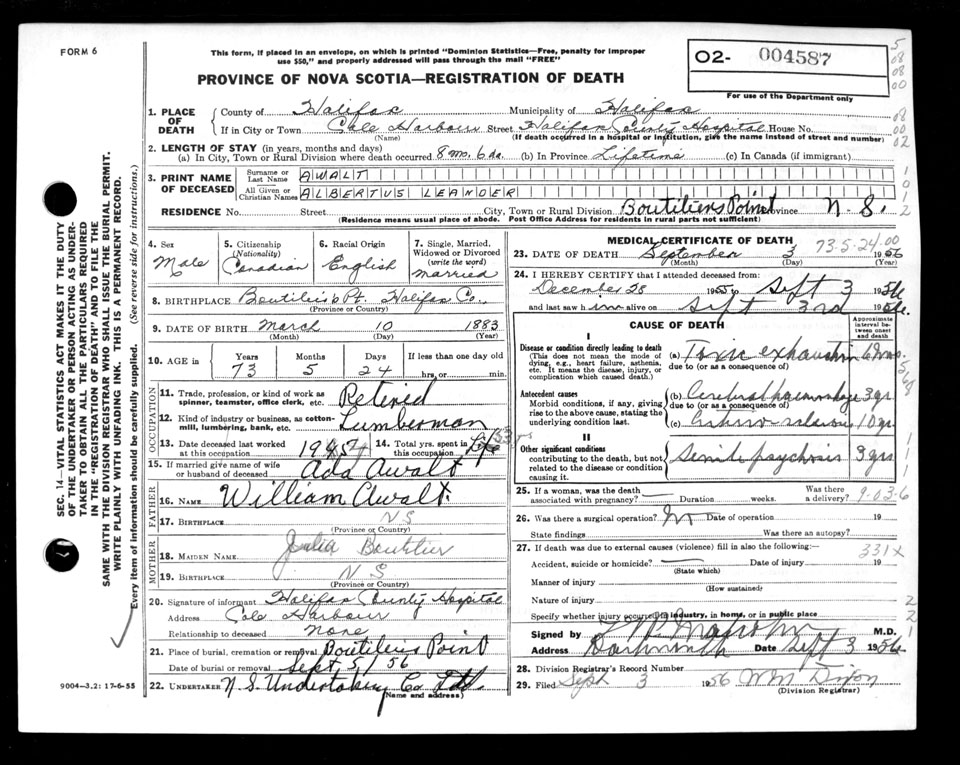 FORM 6
This form, if placed in an envelope, on which is printed "Dominion Statistics—Free, penalty for improper
use $50," and properly addressed will pass through the mail "FREE"
O2- 004587
For use of the Department only
PROVINCE OF NOVA SCOTIA—REGISTRATION OF DEATH
1. PLACE OF DEATH
County of Halifax Municipality of Halifax
If in City or Town Cole Harbour Street Halifax County Hospital House No.
(Name) (If death occurred in a hospital or institution, give the name instead of street and number)
2. LENGTH OF STAY (in years, months and days)
(a) In City, Town or Rural Division where death occurred 8 mo. 6 da. (b) In Province Lifetime (c) In Canada (if immigrant)
3. PRINT NAME OF DECEASED
Surname or Last Name AWALT
All Given or Christian Names ALBERTUS LEANDER
RESIDENCE No. Street City, Town or Rural Division Boutiliers Point Province N.S.
(Residence means usual place of abode. Post Office Address for residents in rural parts not sufficient)
4. Sex Male
5. Citizenship (Nationality) Canadian
6. Racial Origin English
7. Single, Married, Widowed or Divorced (write the word) Married
8. BIRTHPLACE Boutilier's Pt. Halifax Co.
(Province or Country)
9. DATE OF BIRTH March 10 1883
(Month) (Day) (Year)
10. AGE in Years 73 Months 5 Days 24 If less than one day old hrs. or min.
OCCUPATION
11. Trade, profession, or kind of work as spinner, teamster, office clerk, etc. Retired
12. Kind of industry or business, as cotton-mill, lumbering, bank, etc. Lumberman
13. Date deceased last worked at this occupation 19
14. Total yrs. spent in this occupation Life
15. If married give name of wife or husband of deceased Ada Awalt
FATHER
16. NAME William Awalt
17. BIRTHPLACE NS
(Province or Country)
MOTHER
18. MAIDEN NAME Julia Boutilier
19. BIRTHPLACE NS
(Province or Country)
20. Signature of informant Halifax County Hospital
Address Cole Harbour
Relationship to deceased None
21. Place of burial, cremation or removal Boutiliers Point
Date of burial or removal Sept. 5/56
22. UNDERTAKER N.S. Undertaking Co Ltd.
(Name and address)
MEDICAL CERTIFICATE OF DEATH
73-5-24.00
23. DATE OF DEATH September 3 1956
(Month) (Day) (Year)
24. I HEREBY CERTIFY that I attended deceased from:
December 28 1955 to Sept 3 1956
and last saw him alive on Sept 3rd 1956
CAUSE OF DEATH
Approximate interval between onset and death
I
Disease or condition directly leading to death (This does not mean the mode of dying, e.g., heart failure, asthenia, etc. It means the disease, injury, or complication which caused death.)
(a) Toxic exhaustion 6 mos.
due to (or as a consequence of)
Antecedent causes
Morbid conditions, if any, giving rise to the above cause, stating the underlying condition last.
(b) Cerebral haemorrhage 3 yr.
due to (or as a consequence of)
(c) 10 yr.
II
Other significant conditions contributing to the death, but not related to the disease or condition causing it.
Senile psychosis 3 yrs
25. If a woman, was the death associated with pregnancy? Duration weeks. Was there a delivery? 9-03-6
26. Was there a surgical operation? No Date of operation 19
State findings Was there an autopsy?
27. If death was due to external causes (violence) fill in also the following:— 331x
Accident, suicide or homicide? Date of injury 19
(State which)
Manner of injury
(How sustained)
Nature of injury
Specify whether injury occurred in industry, in home, or in public place
Signed by M.D.
Address Dartmouth Date Sept 3 1956
28. Division Registrar's Record Number
29. Filed Sept 3 1956 WM Dixon
(Division Registrar)
SEC. 14—VITAL STATISTICS ACT MAKES IT THE DUTY
OF THE UNDERTAKER OR PERSON ACTING AS UNDER-
TAKER TO OBTAIN ALL THE PARTICULARS REQUIRED
IN THE "REGISTRATION OF DEATH" AND TO FILE THE
SAME WITH THE DIVISION REGISTRAR WHO SHALL ISSUE THE BURIAL PERMIT.
WRITE PLAINLY WITH UNFADING INK. THIS IS A PERMANENT RECORD.
Every item of information should be carefully supplied. (See reverse side for instructions.)
9004-3,2: 17-6-55